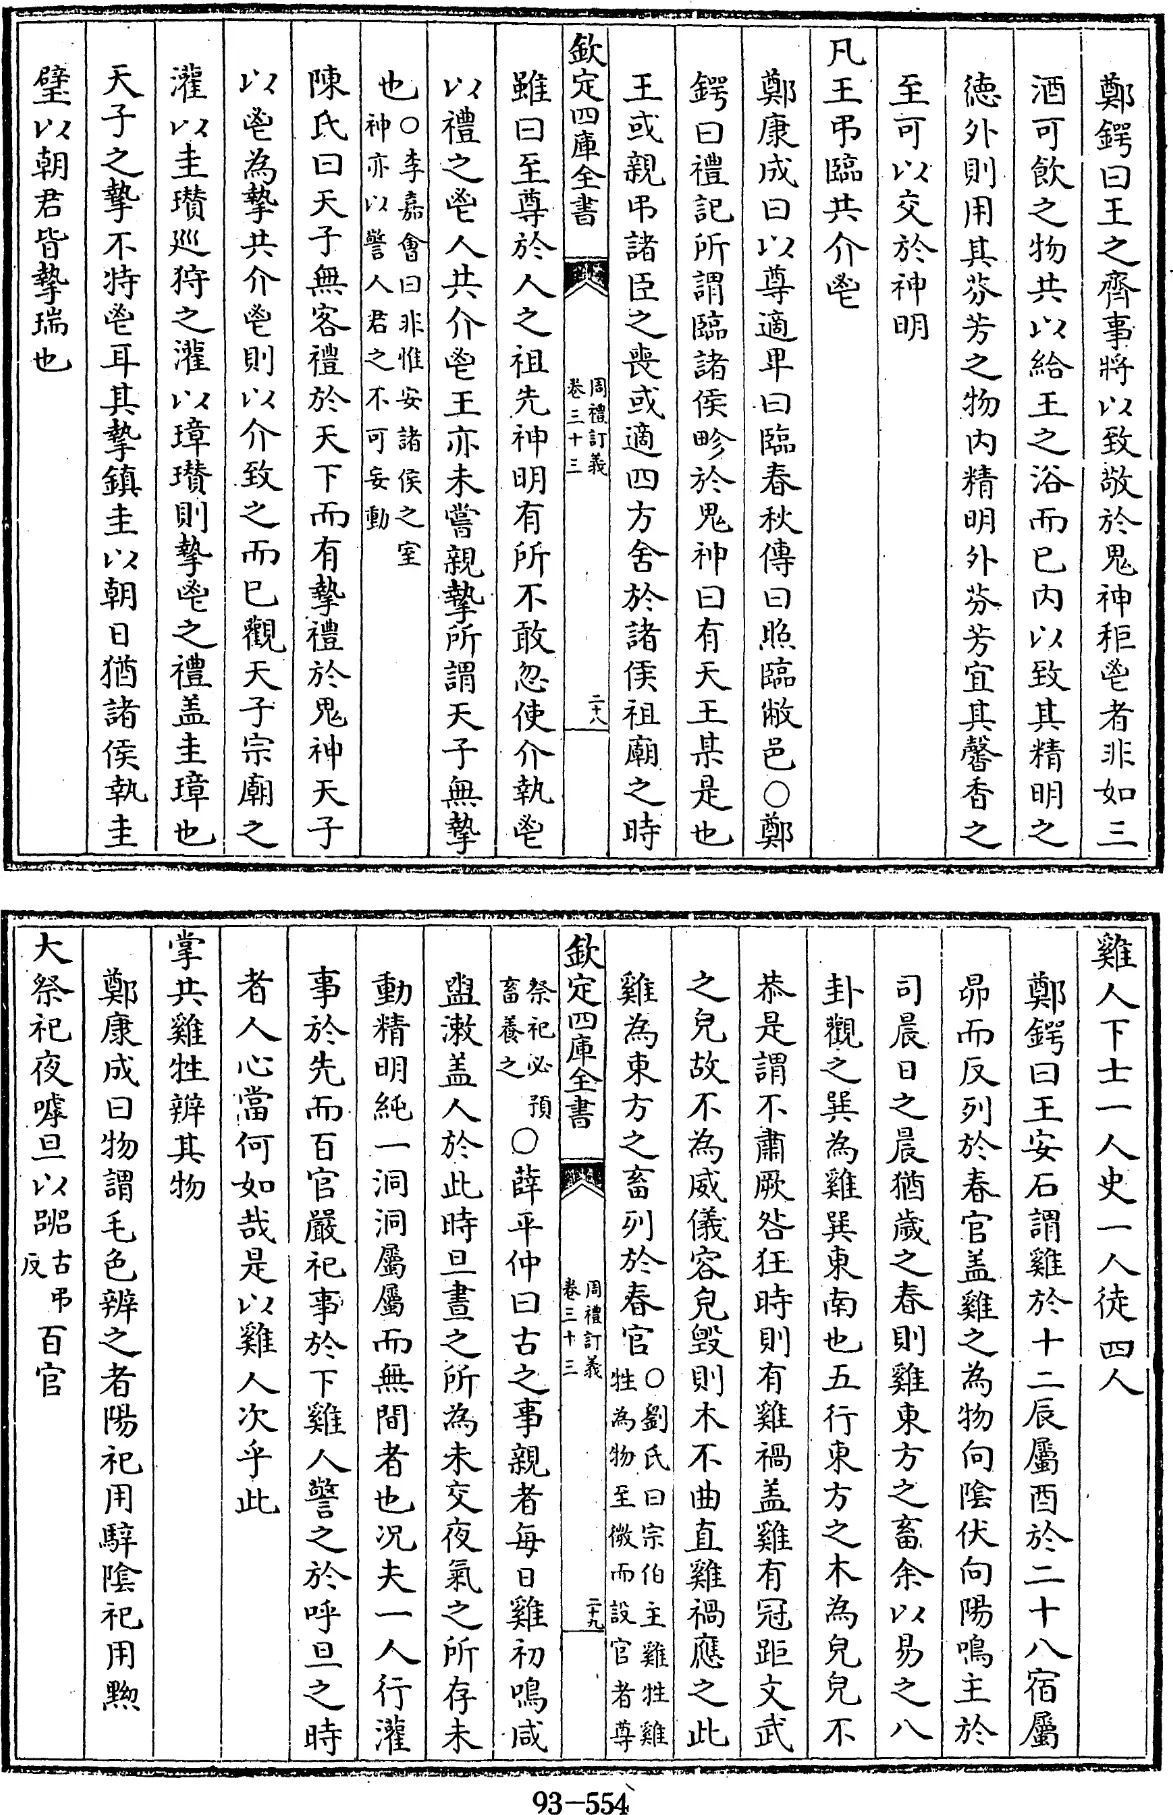 鄭鍔曰王之齊事將以致敬於鬼神秬鬯者非如三
酒可飲之物共以給王之浴而已内以致其精明之
徳外則用其芬芳之物内精明外芬芳宜其馨香之
至可以交於神明
凡王弔臨共介鬯
鄭康成曰以尊適卑曰臨春秋傳曰照臨敝邑○鄭
鍔曰禮記所謂臨諸侯畛於鬼神曰有天王某是也
王或親弔諸臣之喪或適四方舍於諸侯祖廟之時
欽定四庫全書
周禮訂義
卷三十三
二十八
雖曰至尊於人之祖先神明有所不敢忽使介執鬯
以禮之鬯人共介鬯王亦未嘗親摯所謂天子無摯
也○李嘉會曰非惟安諸侯之室
神亦以警人君之不可妄動
陳氏曰天子無客禮於天下而有摯禮於鬼神天子
以鬯為摯共介鬯則以介致之而已觀天子宗廟之
灌以圭瓚廵狩之灌以璋瓚則摯鬯之禮盖圭璋也
天子之摯不特鬯耳其摯鎮圭以朝日猶諸侯執圭
璧以朝君皆摯瑞也
雞人下士一人史一人徒四人
鄭鍔曰王安石謂雞於十二辰屬酉於二十八宿屬
昴而反列於春官盖雞之為物向陰伏向陽鳴主於
司晨日之晨猶歳之春則雞東方之畜余以易之八
卦觀之巽為雞巽東南也五行東方之木為皃皃不
恭是謂不肅厥咎狂時則有雞禍盖雞有冠距文武
之皃故不為威儀容皃毁則木不曲直雞禍應之此
雞為東方之畜列於春官○劉氏曰宗伯主雞牲雞
牲為物至微而設官者尊
欽定四庫全書
周禮訂義
卷三十三
二十九
祭祀必預
畜養之
○薛平仲曰古之事親者每日雞初鳴咸
盥漱盖人於此時旦晝之所為未交夜氣之所存未
動精明純一洞洞屬屬而無間者也况夫一人行灌
事於先而百官嚴祀事於下雞人警之於呼旦之時
者人心當何如哉是以雞人次乎此
掌共雞牲辨其物
鄭康成曰物謂毛色辨之者陽祀用騂陰祀用黝
大祭祀夜嘑旦以嘂古弔反百官
93-554